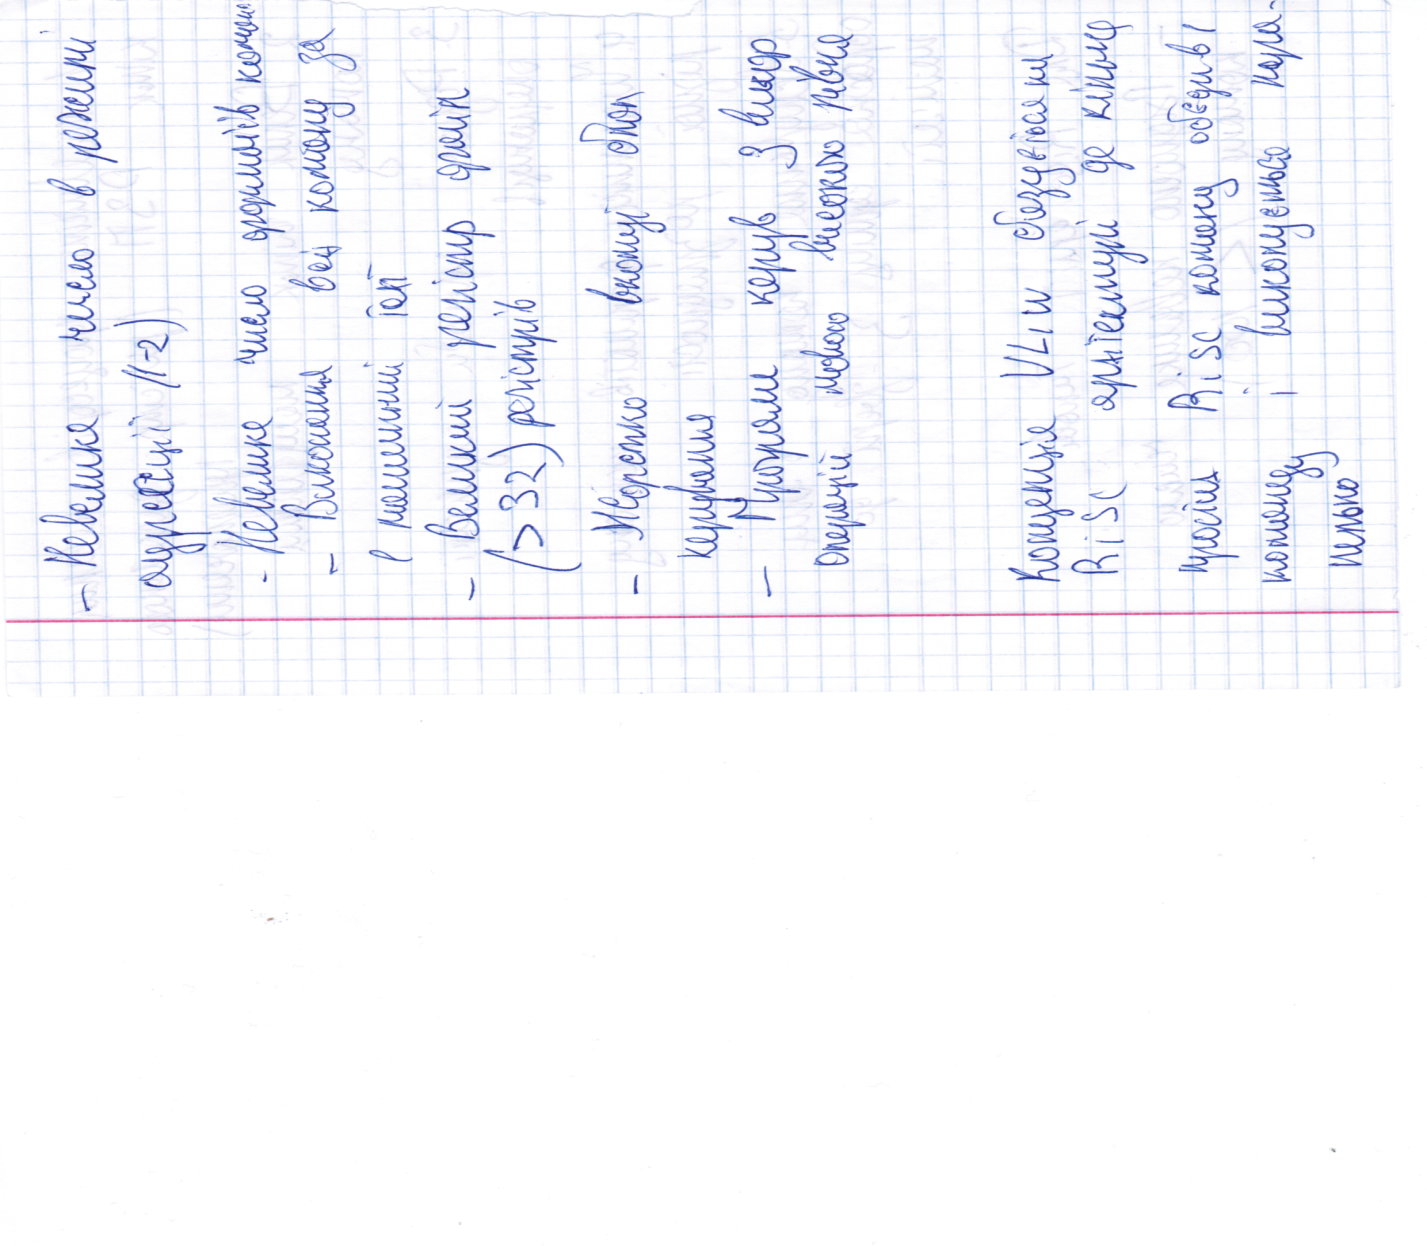 - Невелике число в режимі
адресації (1-2)
- Невелике число форматів команд
- Виконання всіх команд за
1 машинний такт
- Великий регістр файл
(>32) регістрів
- Жорстко блок
керування
- Програм керув з викор
операцій мового високого рівня
Концепція VLIW базується на
RiSC архітектурі де кілька
простих RiSC команд обєдн в 1
команду і виконуеться пара-
лельно